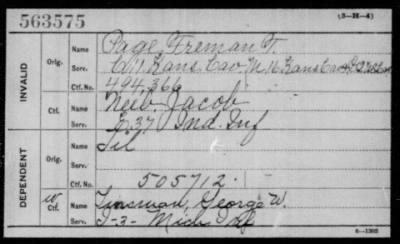 563575
(3—H—4)
INVALID
Orig.
Name Page, Freman T.
Serv. Kans Cav M 16 Kans Cav
Ctf. No. 494,366
Ctf.
Name Neeb, Jacob
Serv. E 37 Ind. Inf
DEPENDENT
Orig.
Name Sil
Serv.
Ctf. No. 505712.
W
Ctf.
Name Tinsman, George W.
Serv. I-3- Mich Inf
6—1203